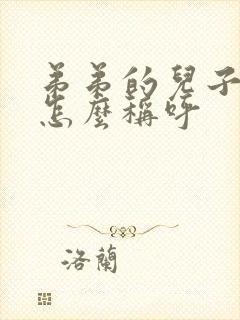 弟弟的兒子
怎麼稱呼
洛蘭